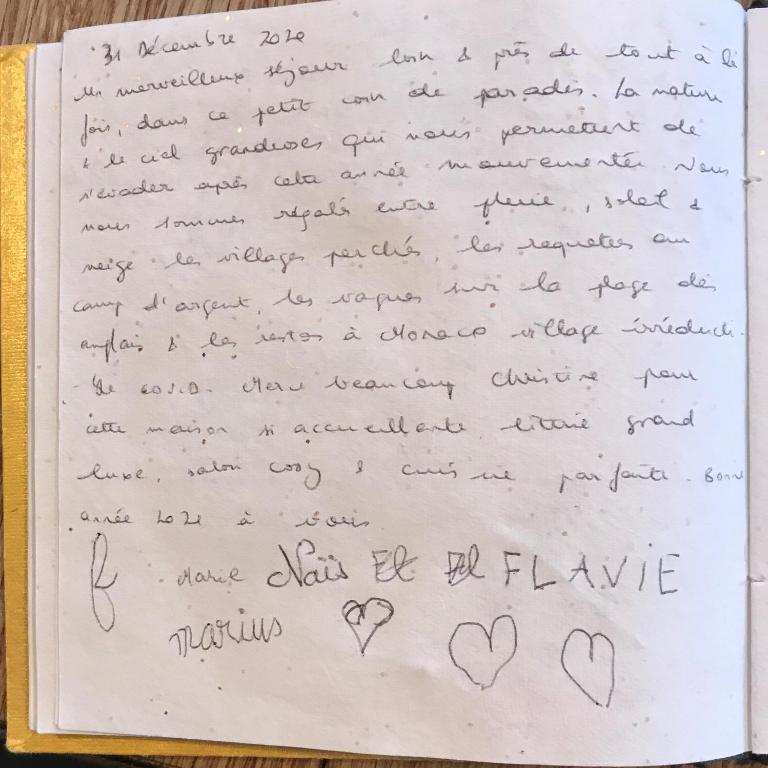 31 Décembre 2020
Un merveilleux séjour loin & près de tout à la
fois, dans ce petit coin de paradis. La nature
& le ciel grandioses qui nous permettent de
s'évader après cette année mouvementée. Nous
nous sommes régalés entre pluie, soleil &
neige les villages perchés, les raquettes au
camp d'argent, les vagues sur la plage des
anglais & les restos à Monaco village irréducti.
covid. Merci beaucoup Christine pour
cette maison si accueillante literie grand
luxe, salon cosy & cuisine parfaite. Bonne
année 2021 à vous
Marie Naïs Et FLAVIE
Marius